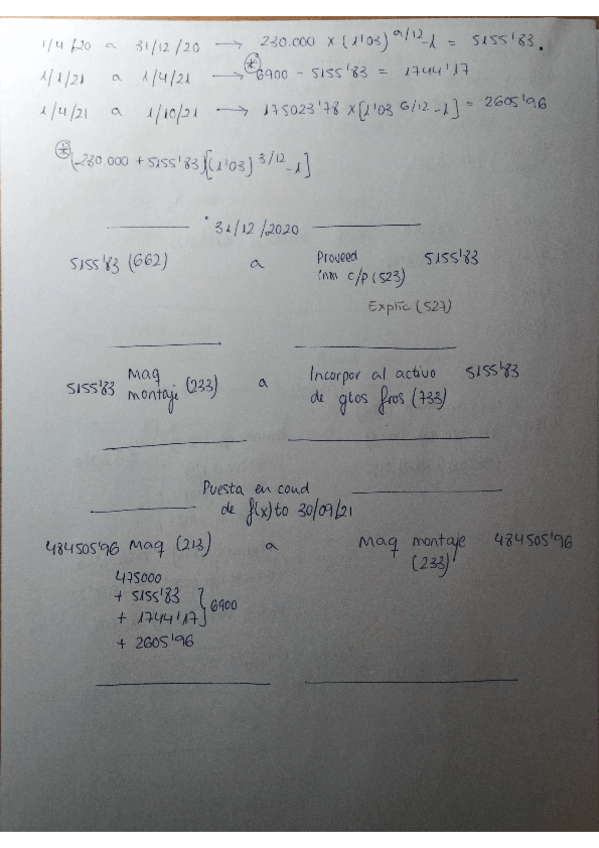 1/4/20 a 31/12/20 → 230.000 × (1'03)^9/12 -1 = 5155'83.
1/1/21 a 1/4/21 → * 6900 - 5155'83 = 1744'17
1/4/21 a 1/10/21 → 175023'78 × [1'03 6/12 -1] = 2605'96
* (230.000 + 5155'83)[(1'03) 3/12 -1]
31/12/2020
5155'83 (662) a Proveed 5155'83
inm c/p (523)
Explic (527)
5155'83 Maq montaje (233) a Incorpor al activo 5155'83
de gtos fros (733)
Puesta en cond
de f(x)to 30/09/21
484505'96 Maq (213) a Maq montaje 484505'96
(233)
475000
+ 5155'83
+ 1744'17 } 6900
+ 2605'96